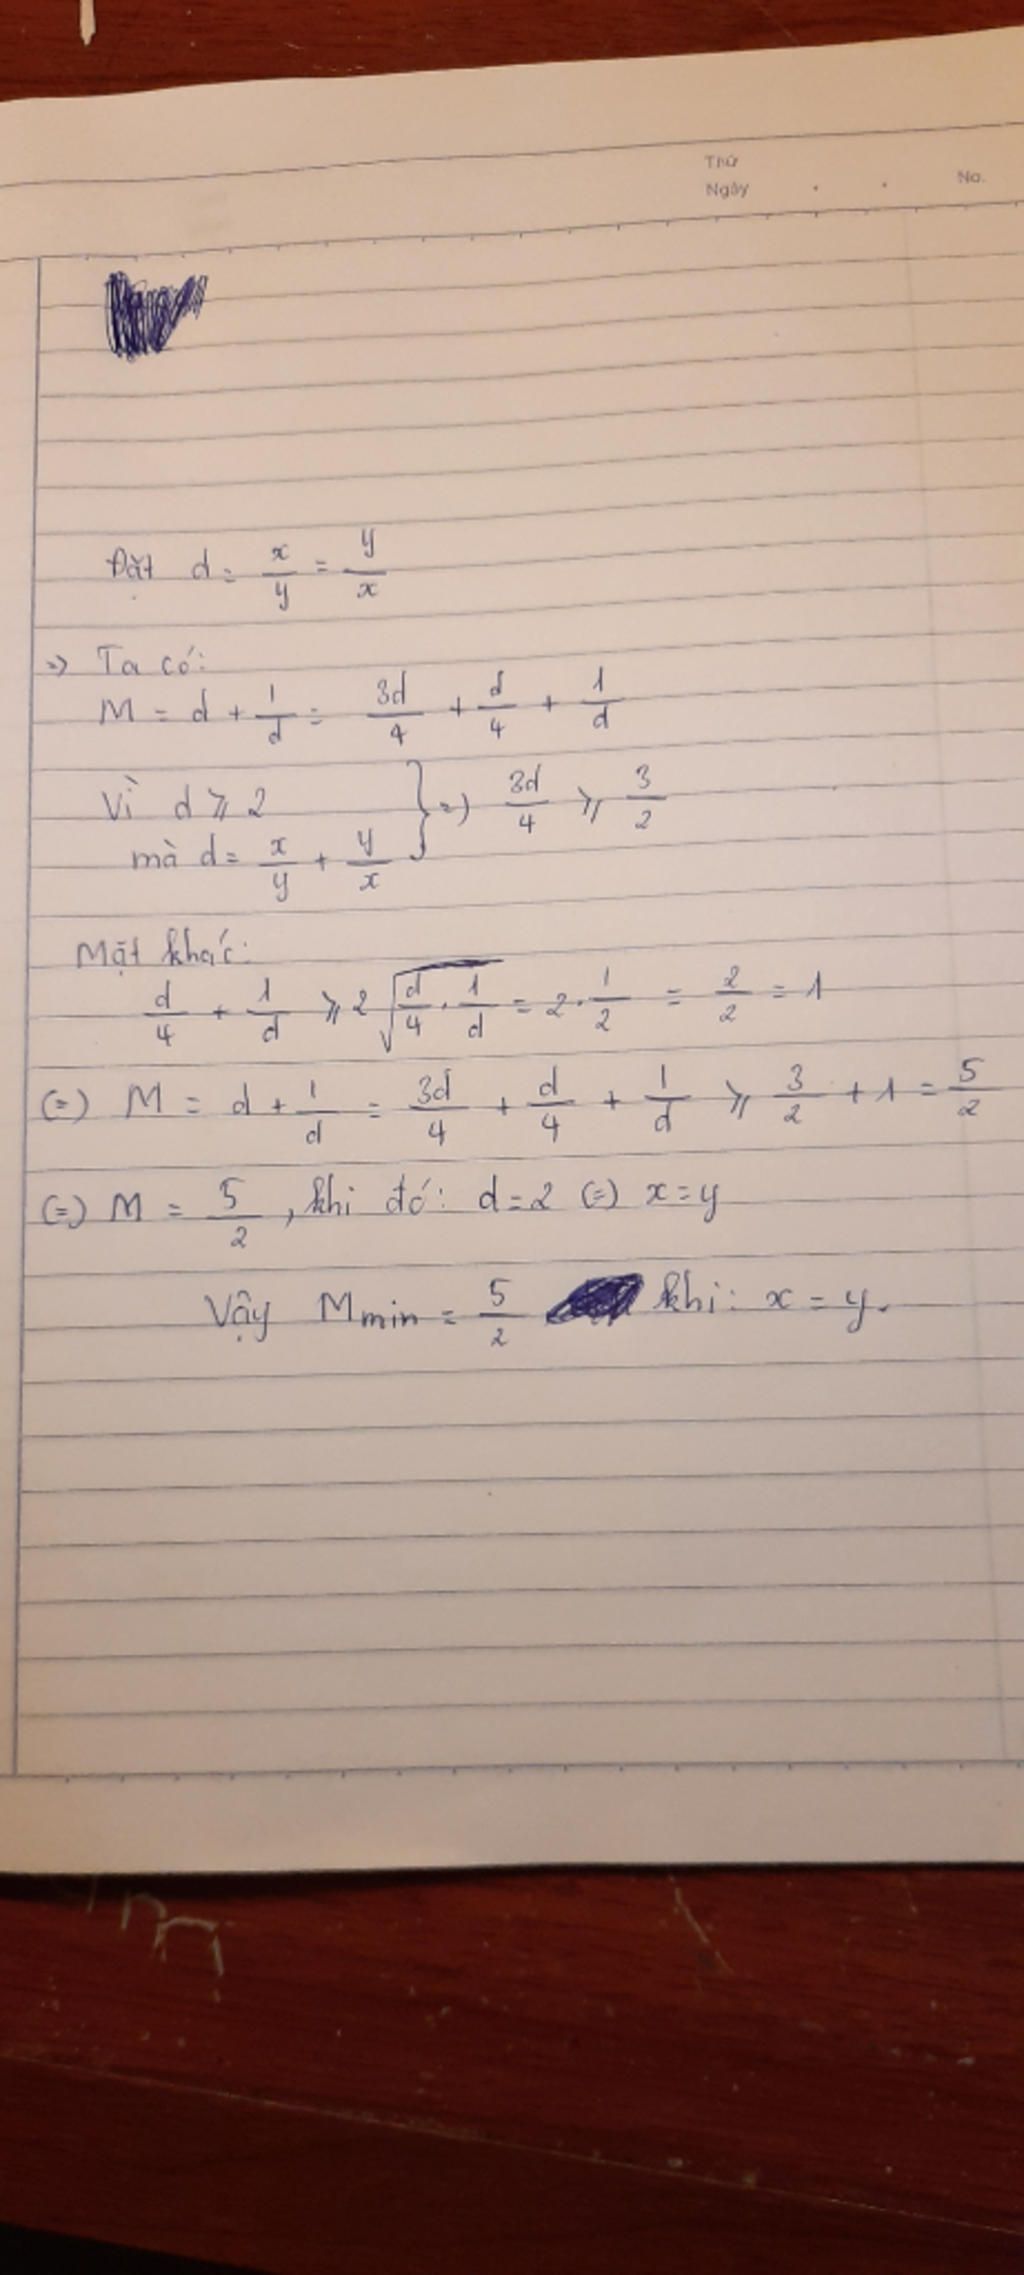 Thứ
Ngày . . No.
Đặt d = x/y = y/x
=> Ta có:
M = d + 1/d = 3d/4 + d/4 + 1/d
Vì d ⩾ 2
mà d = x/y + y/x } => 3d/4 ⩾ 3/2
Mặt khác:
d/4 + 1/d ⩾ 2√(d/4 . 1/d) = 2 . 1/2 = 2/2 = 1
(=) M = d + 1/d = 3d/4 + d/4 + 1/d ⩾ 3/2 + 1 = 5/2
(=) M = 5/2 , khi đó: d = 2 (=) x = y
Vậy Mmin = 5/2 khi: x = y.